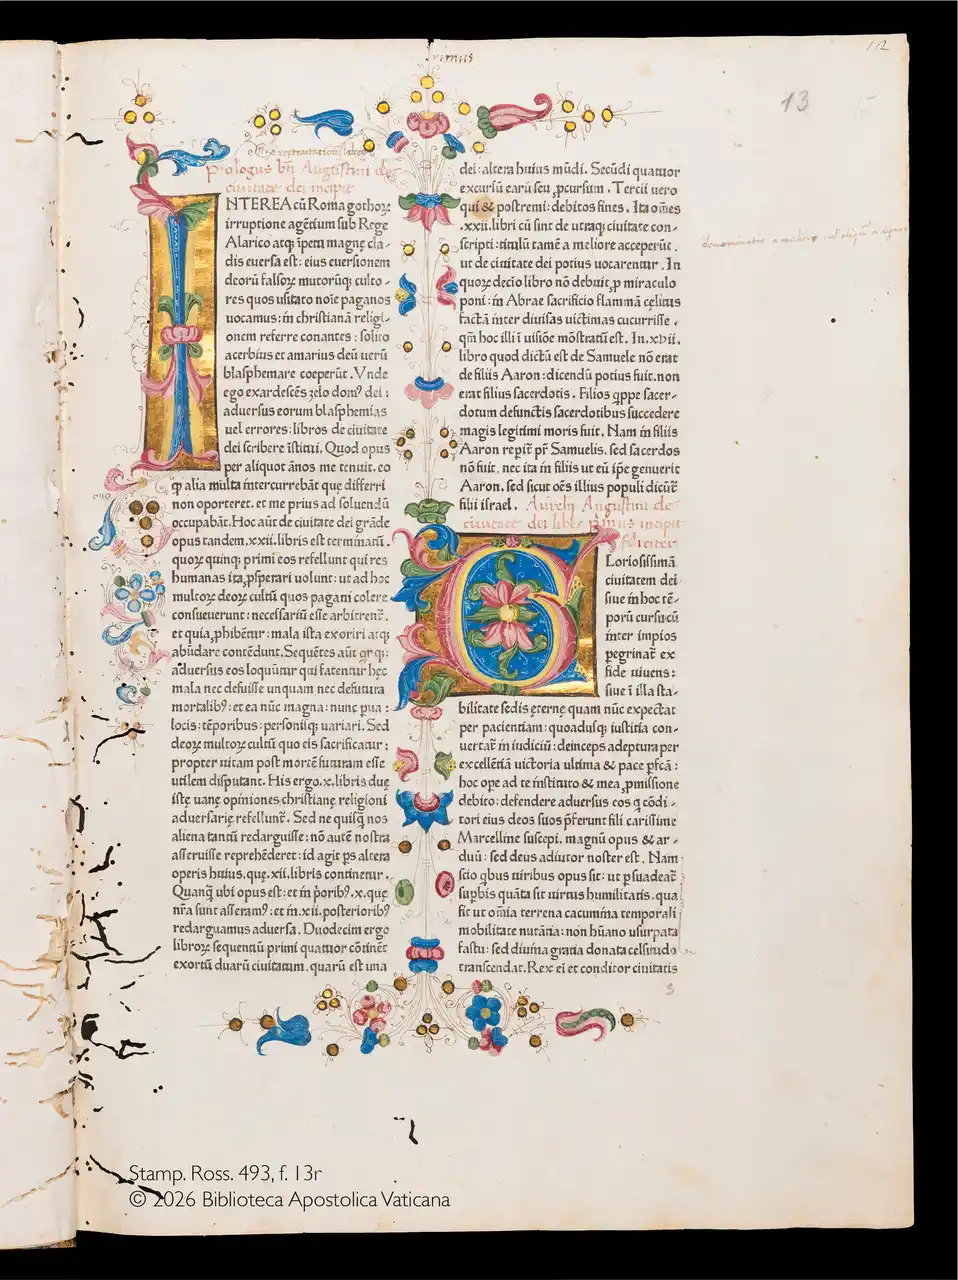 primus
112
13
Prologus bti Augustini de
ciuitate dei incipit
INTEREA cū Roma gothoꝝ
irruptione agētium sub Rege
Alarico atqꝫ īpetu magnę cla-
dis euersa est: eius euersionem
deorū falsoꝝ mutorūqꝫ culto-
res quos usitato noīe paganos
uocamus: in christianā religi-
onem referre conantes: solito
acerbius et amarius deū uerū
blasphemare coeperūt. Vnde
ego exardescēs zelo domꝰ dei:
aduersus eorum blasphemias
uel errores: libros de ciuitate
dei scribere īstitui. Quod opus
per aliquot ānos me tenuit. eo
ꝙ alia multa intercurrebāt quę differri
non oporteret. et me prius ad soluendū
occupabāt. Hoc aūt de ciuitate dei grāde
opus tandem .xxii. libris est terminatū.
quoꝝ quinqꝫ primi eos refellunt qui res
humanas ita ꝓsperari uolunt: ut ad hoc
multoꝝ deoꝝ cultū quos pagani colere
consueuerunt: necessariū esse arbitrent᷑.
et quia ꝓhibēt᷑ur: mala ista exoriri atqꝫ
abūdare contēdunt. Sequētes aūt qnqꝫ:
aduersus eos loquūtur qui fatentur hęc
mala nec defuisse unquam nec defutura
mortalibꝰ: et ea nūc magna: nunc pua:
locis: tēporibus: personisqꝫ uariari. Sed
deoꝝ multoꝝ cultū quo eis sacrificatur:
propter uitam post mortē futuram esse
utilem disputant. His ergo .x. libris duę
istę uanę opiniones christianę religioni
aduersarię refellunt᷑. Sed ne quisqꝫ nos
aliena tantū redarguisse: nō autē nostra
asseruisse reprehēderet: id agit ps altera
operis huius, quę .xii. libris continetur.
Quanqꝫ ubi opus est: et in p̄oribꝰ .x. quę
nr̄a sunt asseramꝰ: et in .xii. posterioribꝰ
redarguamus aduersa. Duodecim ergo
libroꝝ sequentū primi quatuor cōtinēt
exortū duarū ciuitatum. quarū est una
dei: altera huius mūdi. Secūdi quatuor
excursū earū seu ꝓcursum. Tercii uero
qui & postremi: debitos fines. Ita om̄es
.xxii. libri cū sint de utraqꝫ ciuitate con-
scripti: titulū tamē a meliore acceperūt.
ut de ciuitate dei potius uocarentur. In
quoꝝ decio libro nō debuit ꝓ miraculo
poni: in Abrae sacrificio flammā cęlitus
factā inter diuisas uictimas cucurrisse.
qm̄ hoc illi ī uisiōe mōstratū est. In .xvii.
libro quod dictū est de Samuele nō erat
de filiis Aaron: dicendū potius fuit. non
erat filius sacerdotis. Filios qppe sacer-
dotum defunctis sacerdotibus succedere
magis legitimi moris fuit. Nam in filiis
Aaron repit᷑ pr̄ Samuelis. sed sacerdos
nō fuit. nec ita in filiis ut eū ip̄e genuerit
Aaron. sed sicut oēs illius populi dicūt᷑
filii israel. Aurelij Augustini de
ciuitate dei liber primus incipit
feliciter
Gloriosissimā
ciuitatem dei
siue in hoc tē-
porū cursu cū
inter impios
peregrinat᷑ ex
fide uiuens:
siue ī illa sta-
bilitate sedis ęternę quam nūc expectat
per pacientiam: quoadusqꝫ iustitia con-
uertat᷑ in iudiciū: deinceps adeptura per
excellētiā uictoria ultima & pace pfcā:
hoc ope ad te īnstituto & mea ꝓmissione
debito: defendere aduersus eos q cōdi-
tori eius deos suos p̄ferunt fili carissime
Marcelline suscepi. magnū opus & ar-
duū: sed deus adiutor noster est. Nam
scio qbus uiribus opus sit: ut psuadeat᷑
supbis quāta sit uirtus humilitatis. qua
fit ut om̄ia terrena cacumina temporali
mobilitate nutātia: non hūano usurpata
fastu: sed diuina gratia donata celsitudo
transcendat. Rex eī et conditor ciuitatis
3
Stamp. Ross. 493, f. 13r
© 2026 Biblioteca Apostolica Vaticana